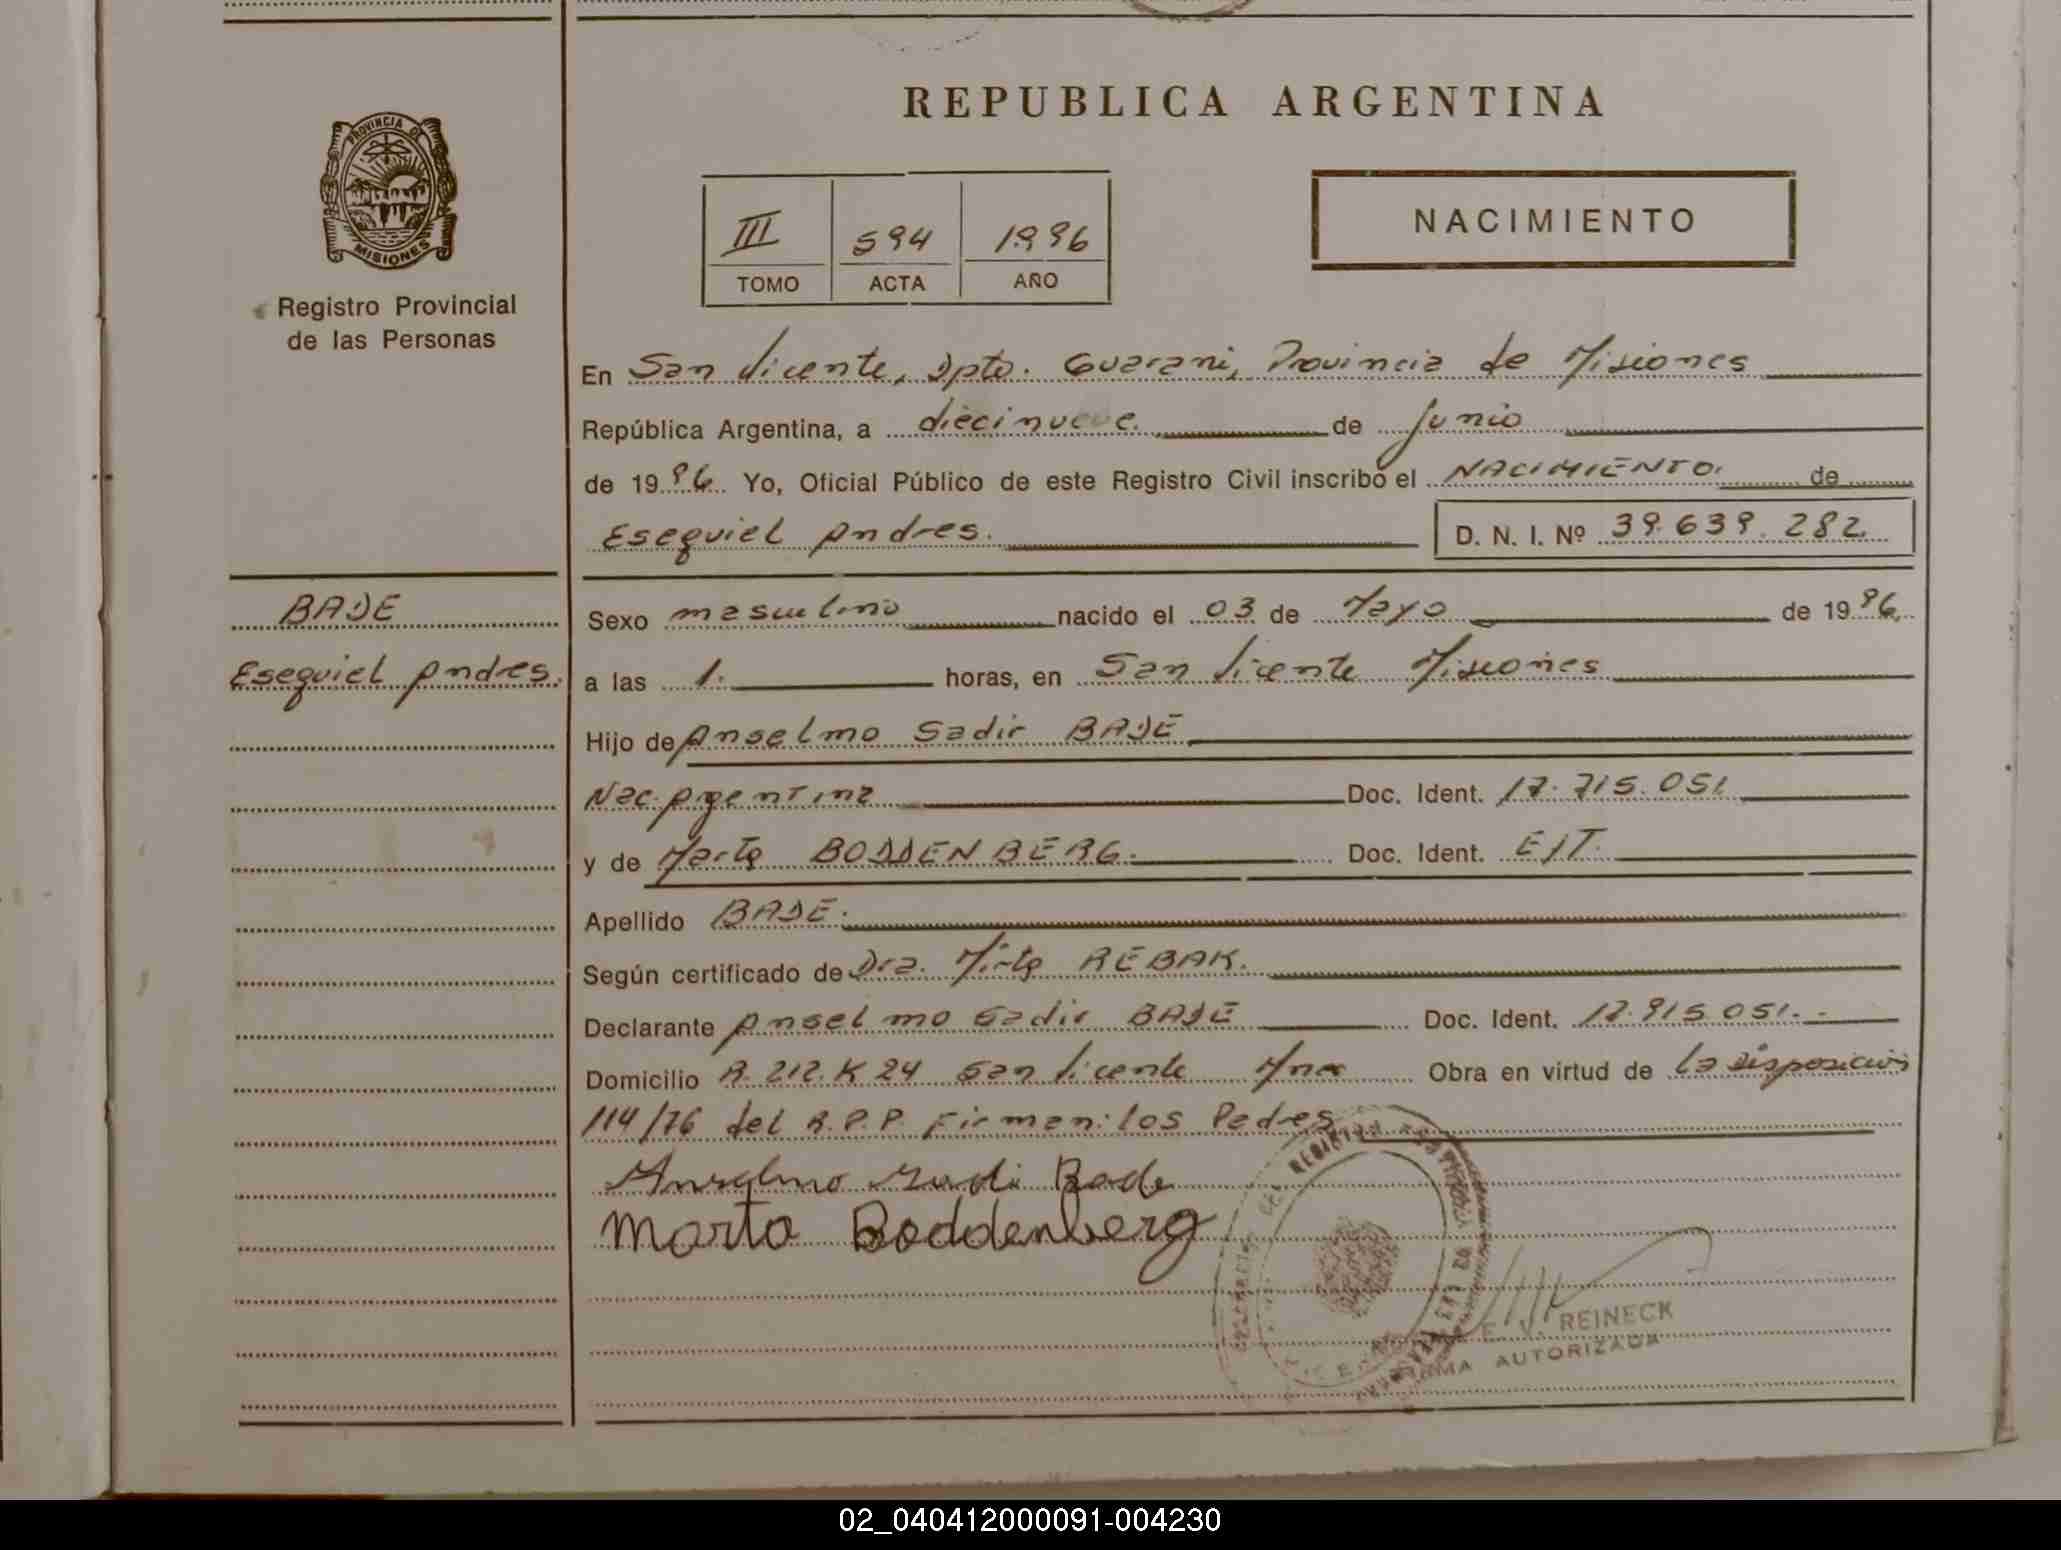 REPUBLICA ARGENTINA
PROVINCIA DE
MISIONES
Registro Provincial
de las Personas
III 594 1996
TOMO ACTA AÑO
NACIMIENTO
En San Vicente, Dpto. Guarani, Provincia de Misiones
República Argentina, a diecinueve de Junio
de 1996 Yo, Oficial Público de este Registro Civil inscribo el NACIMIENTO. de
Esequiel Andres. D. N. I. Nº 39.639.282
BADE
Esequiel Andres.
Sexo masculino nacido el 03 de Mayo de 1996
a las 1. horas, en San Vicente Misiones
Hijo de Anselmo Sadir BADE
Nac. Argentina Doc. Ident. 17.715.051
y de Marta BODDENBERG. Doc. Ident. E/T.
Apellido BADE.
Según certificado de Dra. Mirta REBAK.
Declarante Anselmo Sadir BADE Doc. Ident. 17.915.051.-
Domicilio R. 212. K 24 San Vicente Mnes Obra en virtud de la Disposición
114/76 del R.P.P. Firman: los Padres
Anselmo Bade
Marta Boddenberg
E. V. REINECK
FIRMA AUTORIZADA
02_040412000091-004230